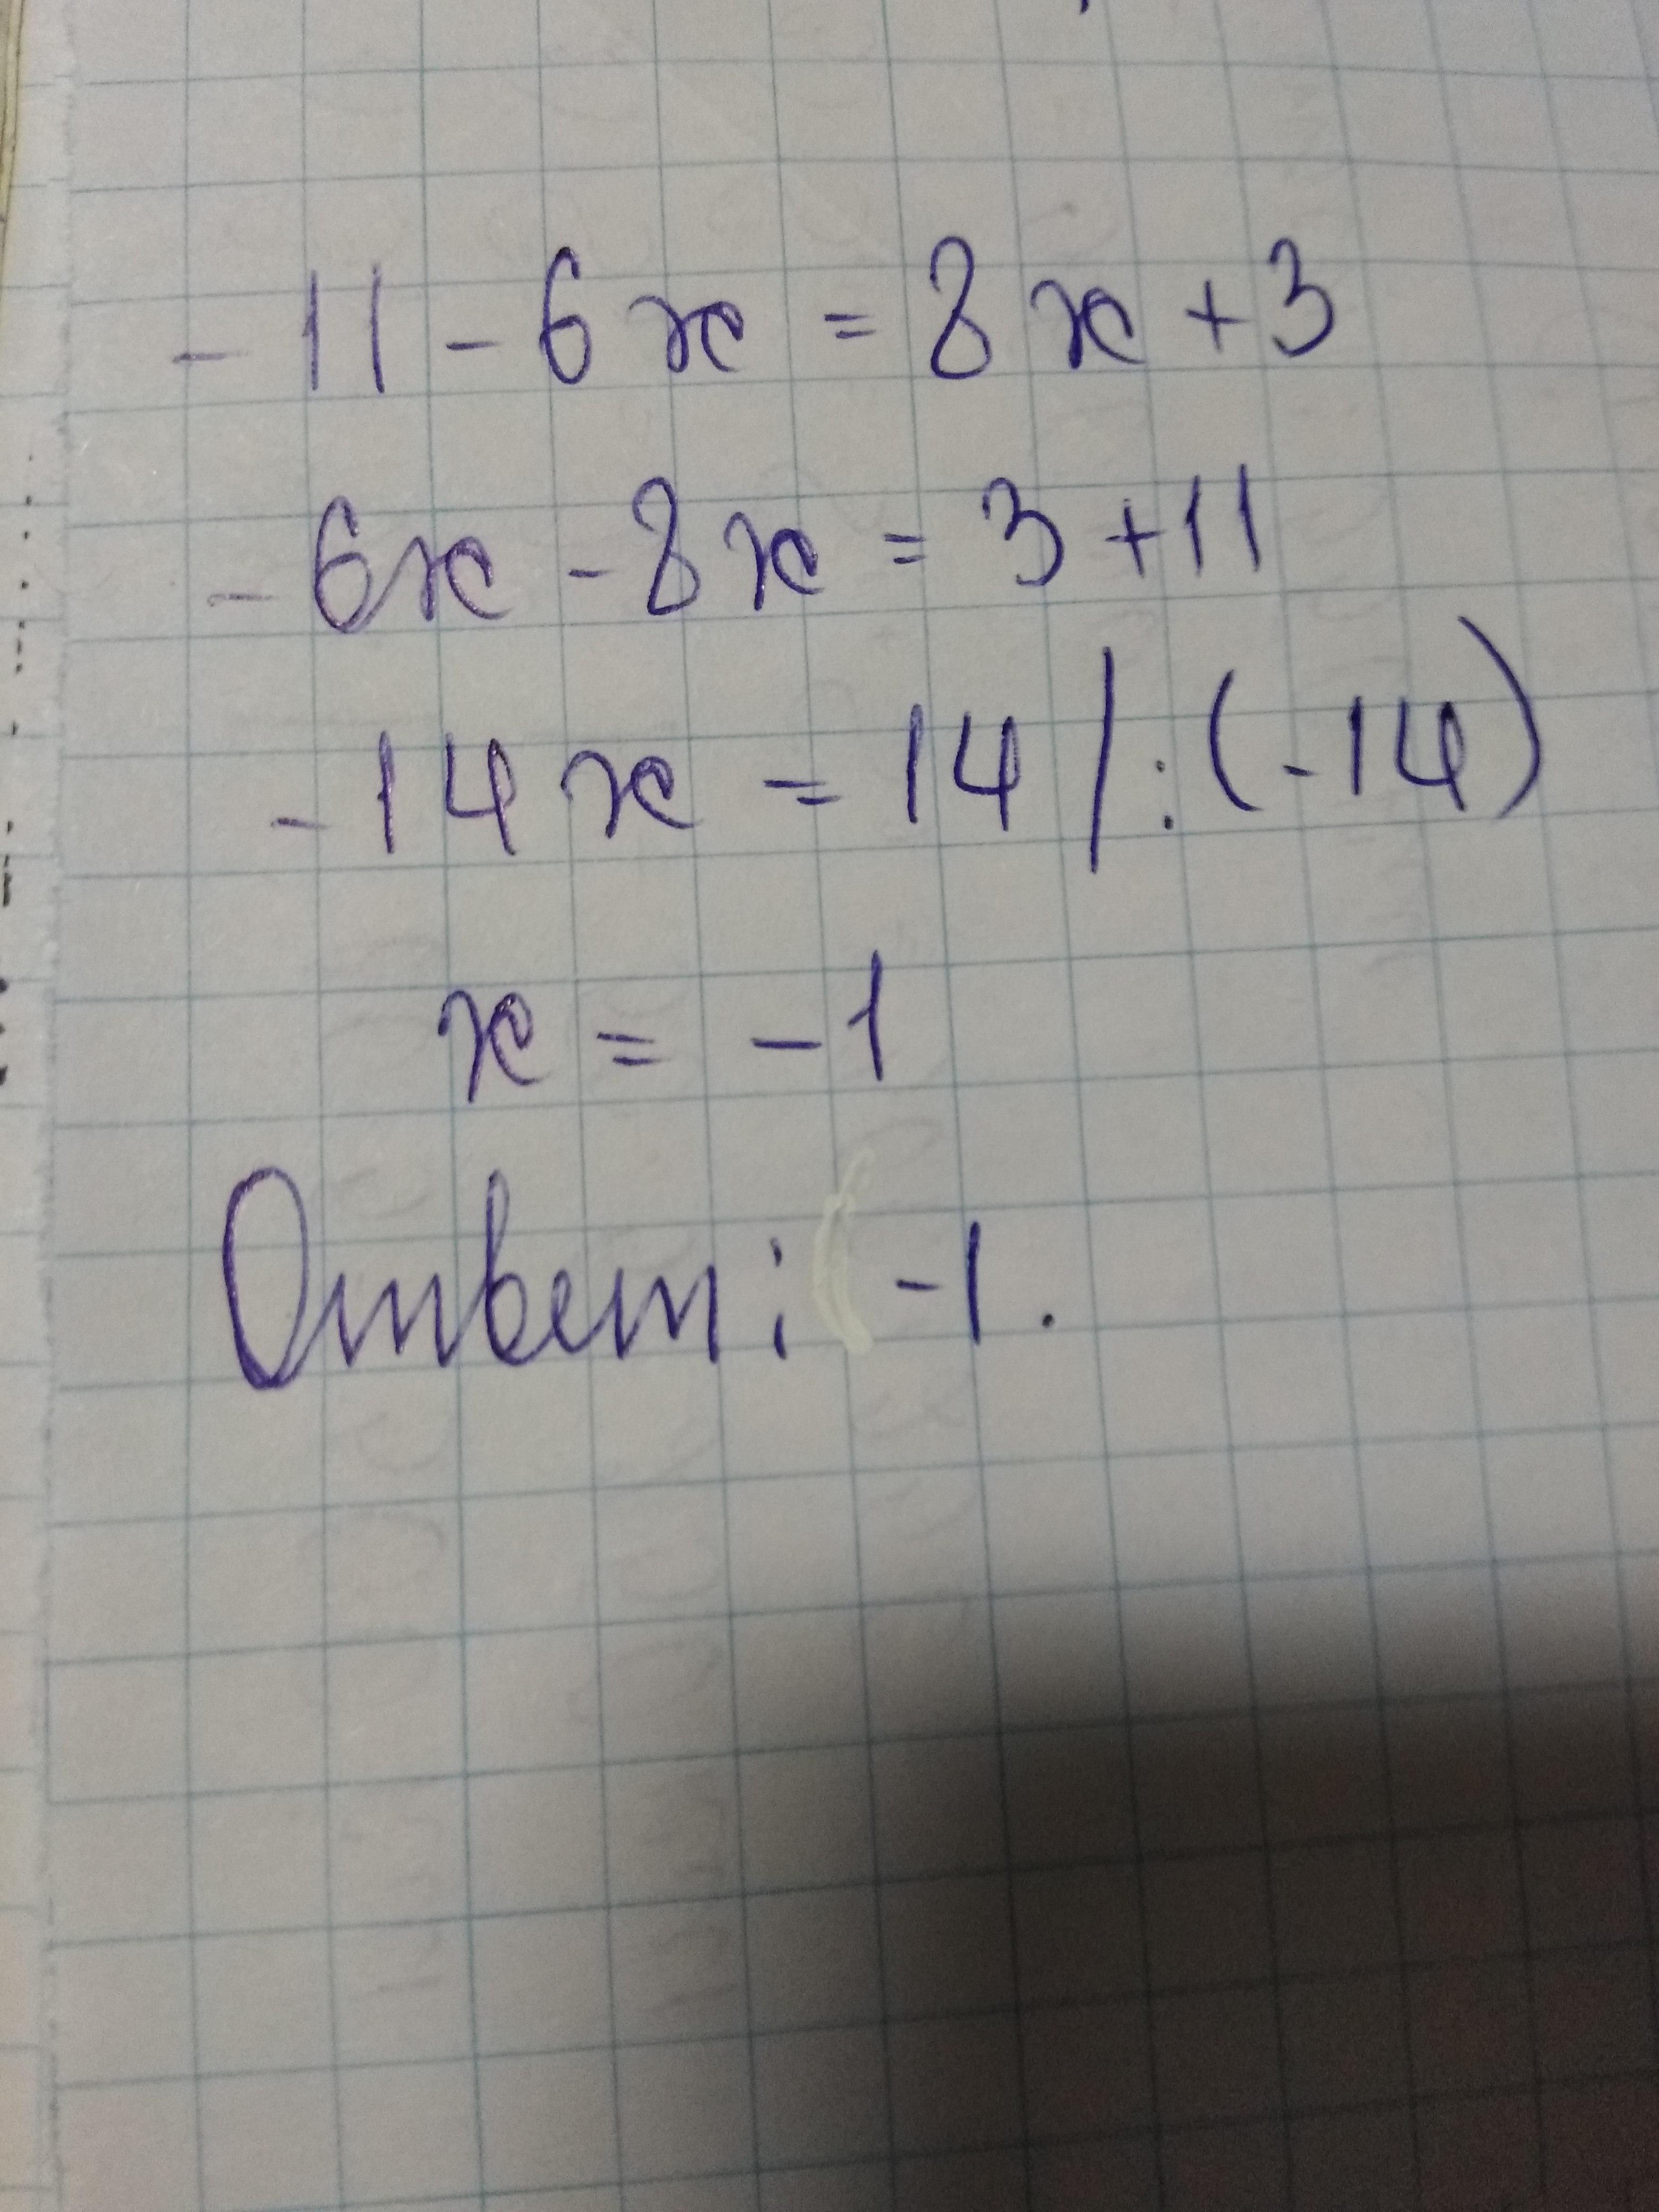 -11-6x=8x+3
-6x-8x=3+11
-14x=14/:(-14)
x=-1
Ответ: -1.